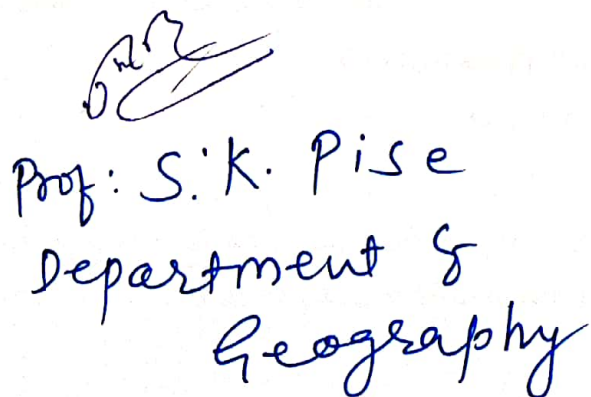 Prof: S.K. Pise
Department of
Geography